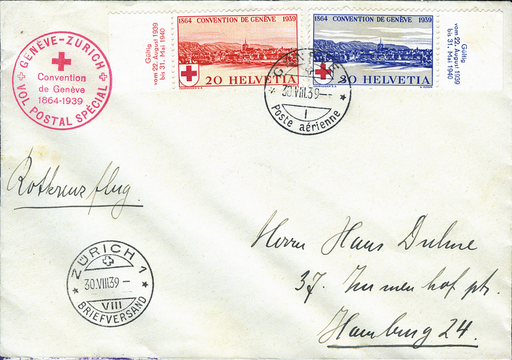 GENÈVE-ZURICH
Convention
de Genève
1864-1939
VOL POSTAL SPÉCIAL
Gültig
vom 22. August 1939
bis 31. Mai 1940
1864 CONVENTION DE GENÈVE 1939
20 HELVETIA
1864 CONVENTION DE GENÈVE 1939
30 HELVETIA
Gültig
vom 22. August 1939
bis 31. Mai 1940
30.VIII.39
1
Poste aérienne
Rotkreuzflug.
ZÜRICH 1
30.VIII39
VIII
BRIEFVERSAND
Herrn Hans
37.
Hamburg 24.